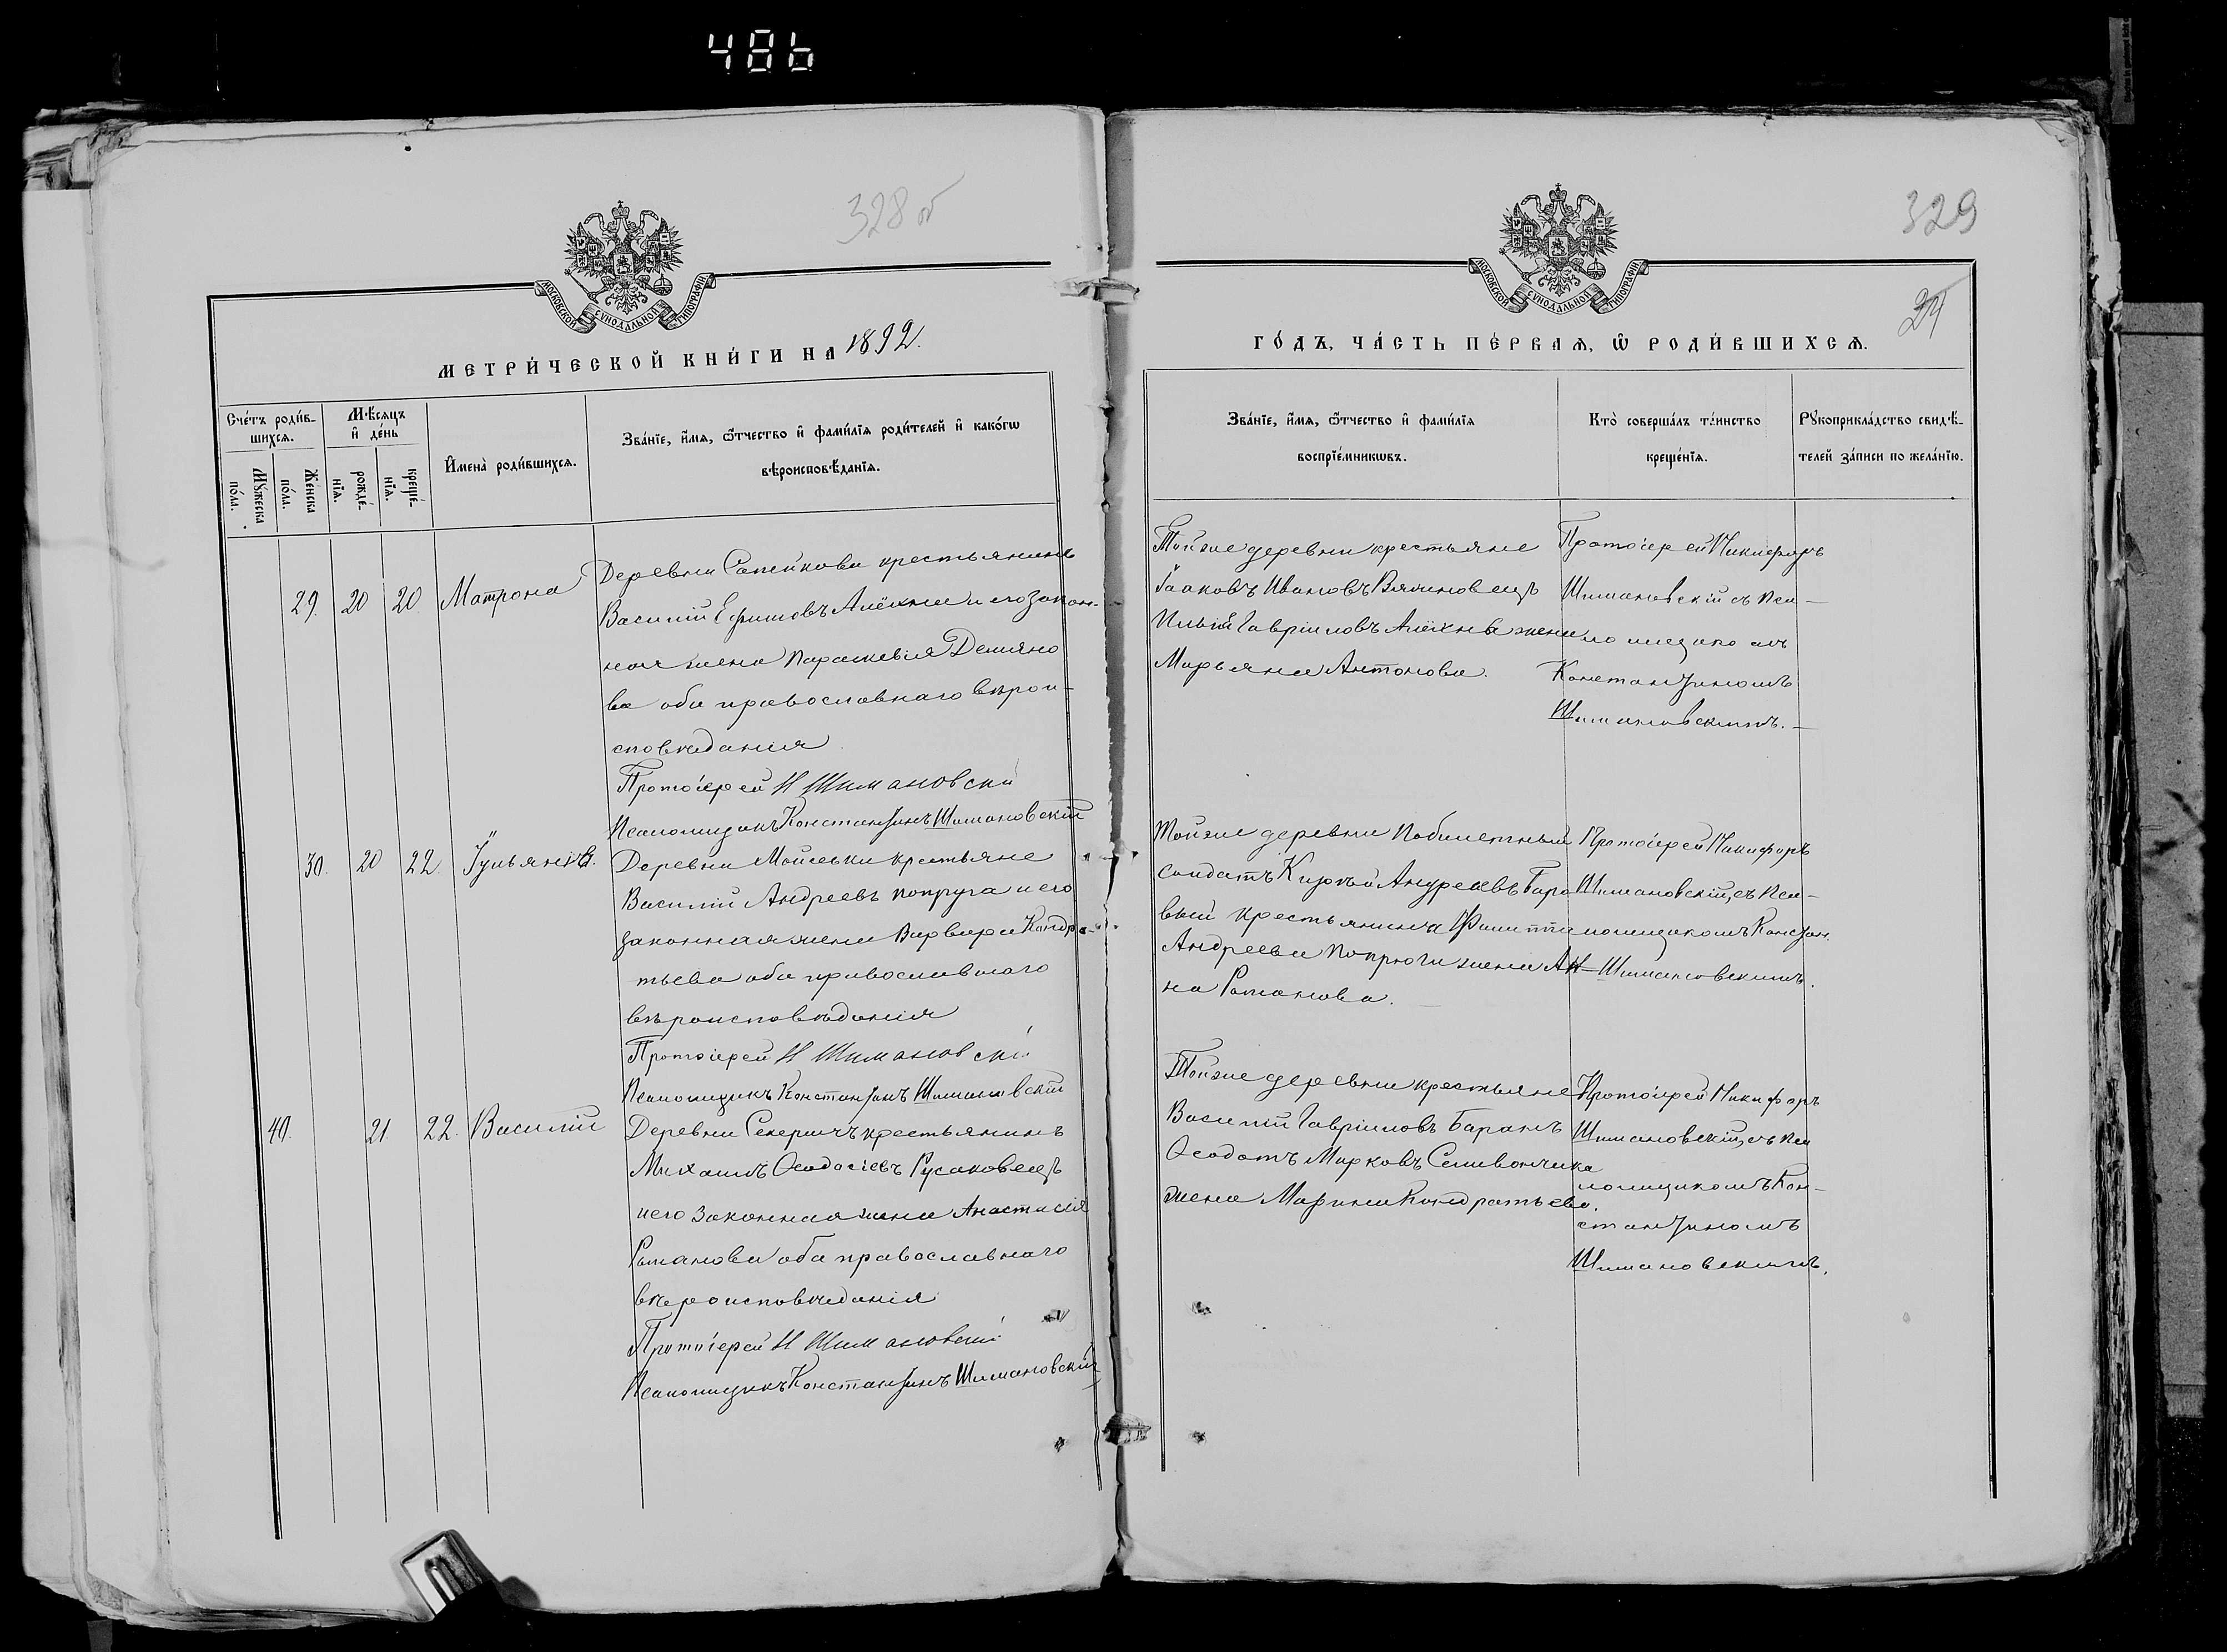 486
328 об
МОСКОВСКОЙ СУНОДАЛЬНОЙ ТИПОГРАФІИ
МЕТРИ́ЧЕСКОЙ КНИ́ГИ НА 1892.
Сче́тъ роди́в-
шихсѧ.
Мѣ́сѧцъ
и҆ де́нь
Мꙋ́жеска
по́ла.
Же́нска
по́ла.
рожде́-
нїѧ.
креще́-
нїѧ.
И҆мена̀ роди́вшихсѧ.
Зва́нїе, и҆́мѧ, ѻ҆́тчество и҆ фами́лїѧ роди́телей и҆ како́гѡ
вѣроисповѣ́данїѧ.
29. 20 20. Матрона
Деревни Сапейкова крестьянинъ
Василій Ефимовъ Алёхна и его закон-
ная жена Параскевія Демяно
ва оба православнаго вѣрои-
сповѣданія
Протоіерей Н Шимановскій
Псаломщикъ Константинъ Шимановскій
30. 20 22. Іульянія.
Деревни Мойсеьки крестьяне
Василій Андреевъ Попруга и его
законная жена Варвара Кондра-
тьева оба православнаго
вѣроисповѣданія
Протоіерей Н Шимановскій
Псаломщикъ Константинъ Шимановскій
40. 21. 22. Василій
Деревни Секеричъ крестьянинъ
Михаилъ Ѳеодосіевъ Русаковецъ
и его законная жена Анастасія
Романова оба православнаго
вѣроисповѣданія
Протоіерей Н Шимановскій
Псаломщикъ Константинъ Шимановскій
329
24
МОСКОВСКОЙ СУНОДАЛЬНОЙ ТИПОГРАФІИ
ГО́ДЪ, ЧА́СТЬ ПЕ́РВАѦ, Ѡ҆ РОДИ́ВШИХСѦ.
Зва́нїе, и҆́мѧ, ѻ҆́тчество и҆ фами́лїѧ
воспрїе́мникѡвъ.
Кто̀ соверша́лъ та́инство
креще́нїѧ.
Рꙋкоприкла́дство свидѣ́-
телей за́писи по жела́нїю.
Тойже деревни крестьяне
Іаковъ Ивановъ Вячиновецъ
Ильи Гавріиловъ Алёхны жена
Марьяна Антонова.
Протоіерей Никифоръ
Шимановскій съ Пса-
ломщикомъ
Константиномъ
Шимановскимъ.
Тойже деревни Побилетный
солдатъ Андреевъ Баро
вый крестьянина Филиппа
Андреева Попрюги жена Ан-
на Романова.
Протоіерей Никифоръ
Шимановскій, съ Пса-
ломщикомъ Констан.
Шимановскимъ.
Тойже деревни крестьяне
Василій Гавріиловъ Баранъ
Ѳеодотъ Марковъ Селивончика
жена Марина Кондратьева.
Протоіерей Никифоръ
Шимановскій, съ Пса
ломщикомъ Кон-
стантиномъ
Шимановскимъ.